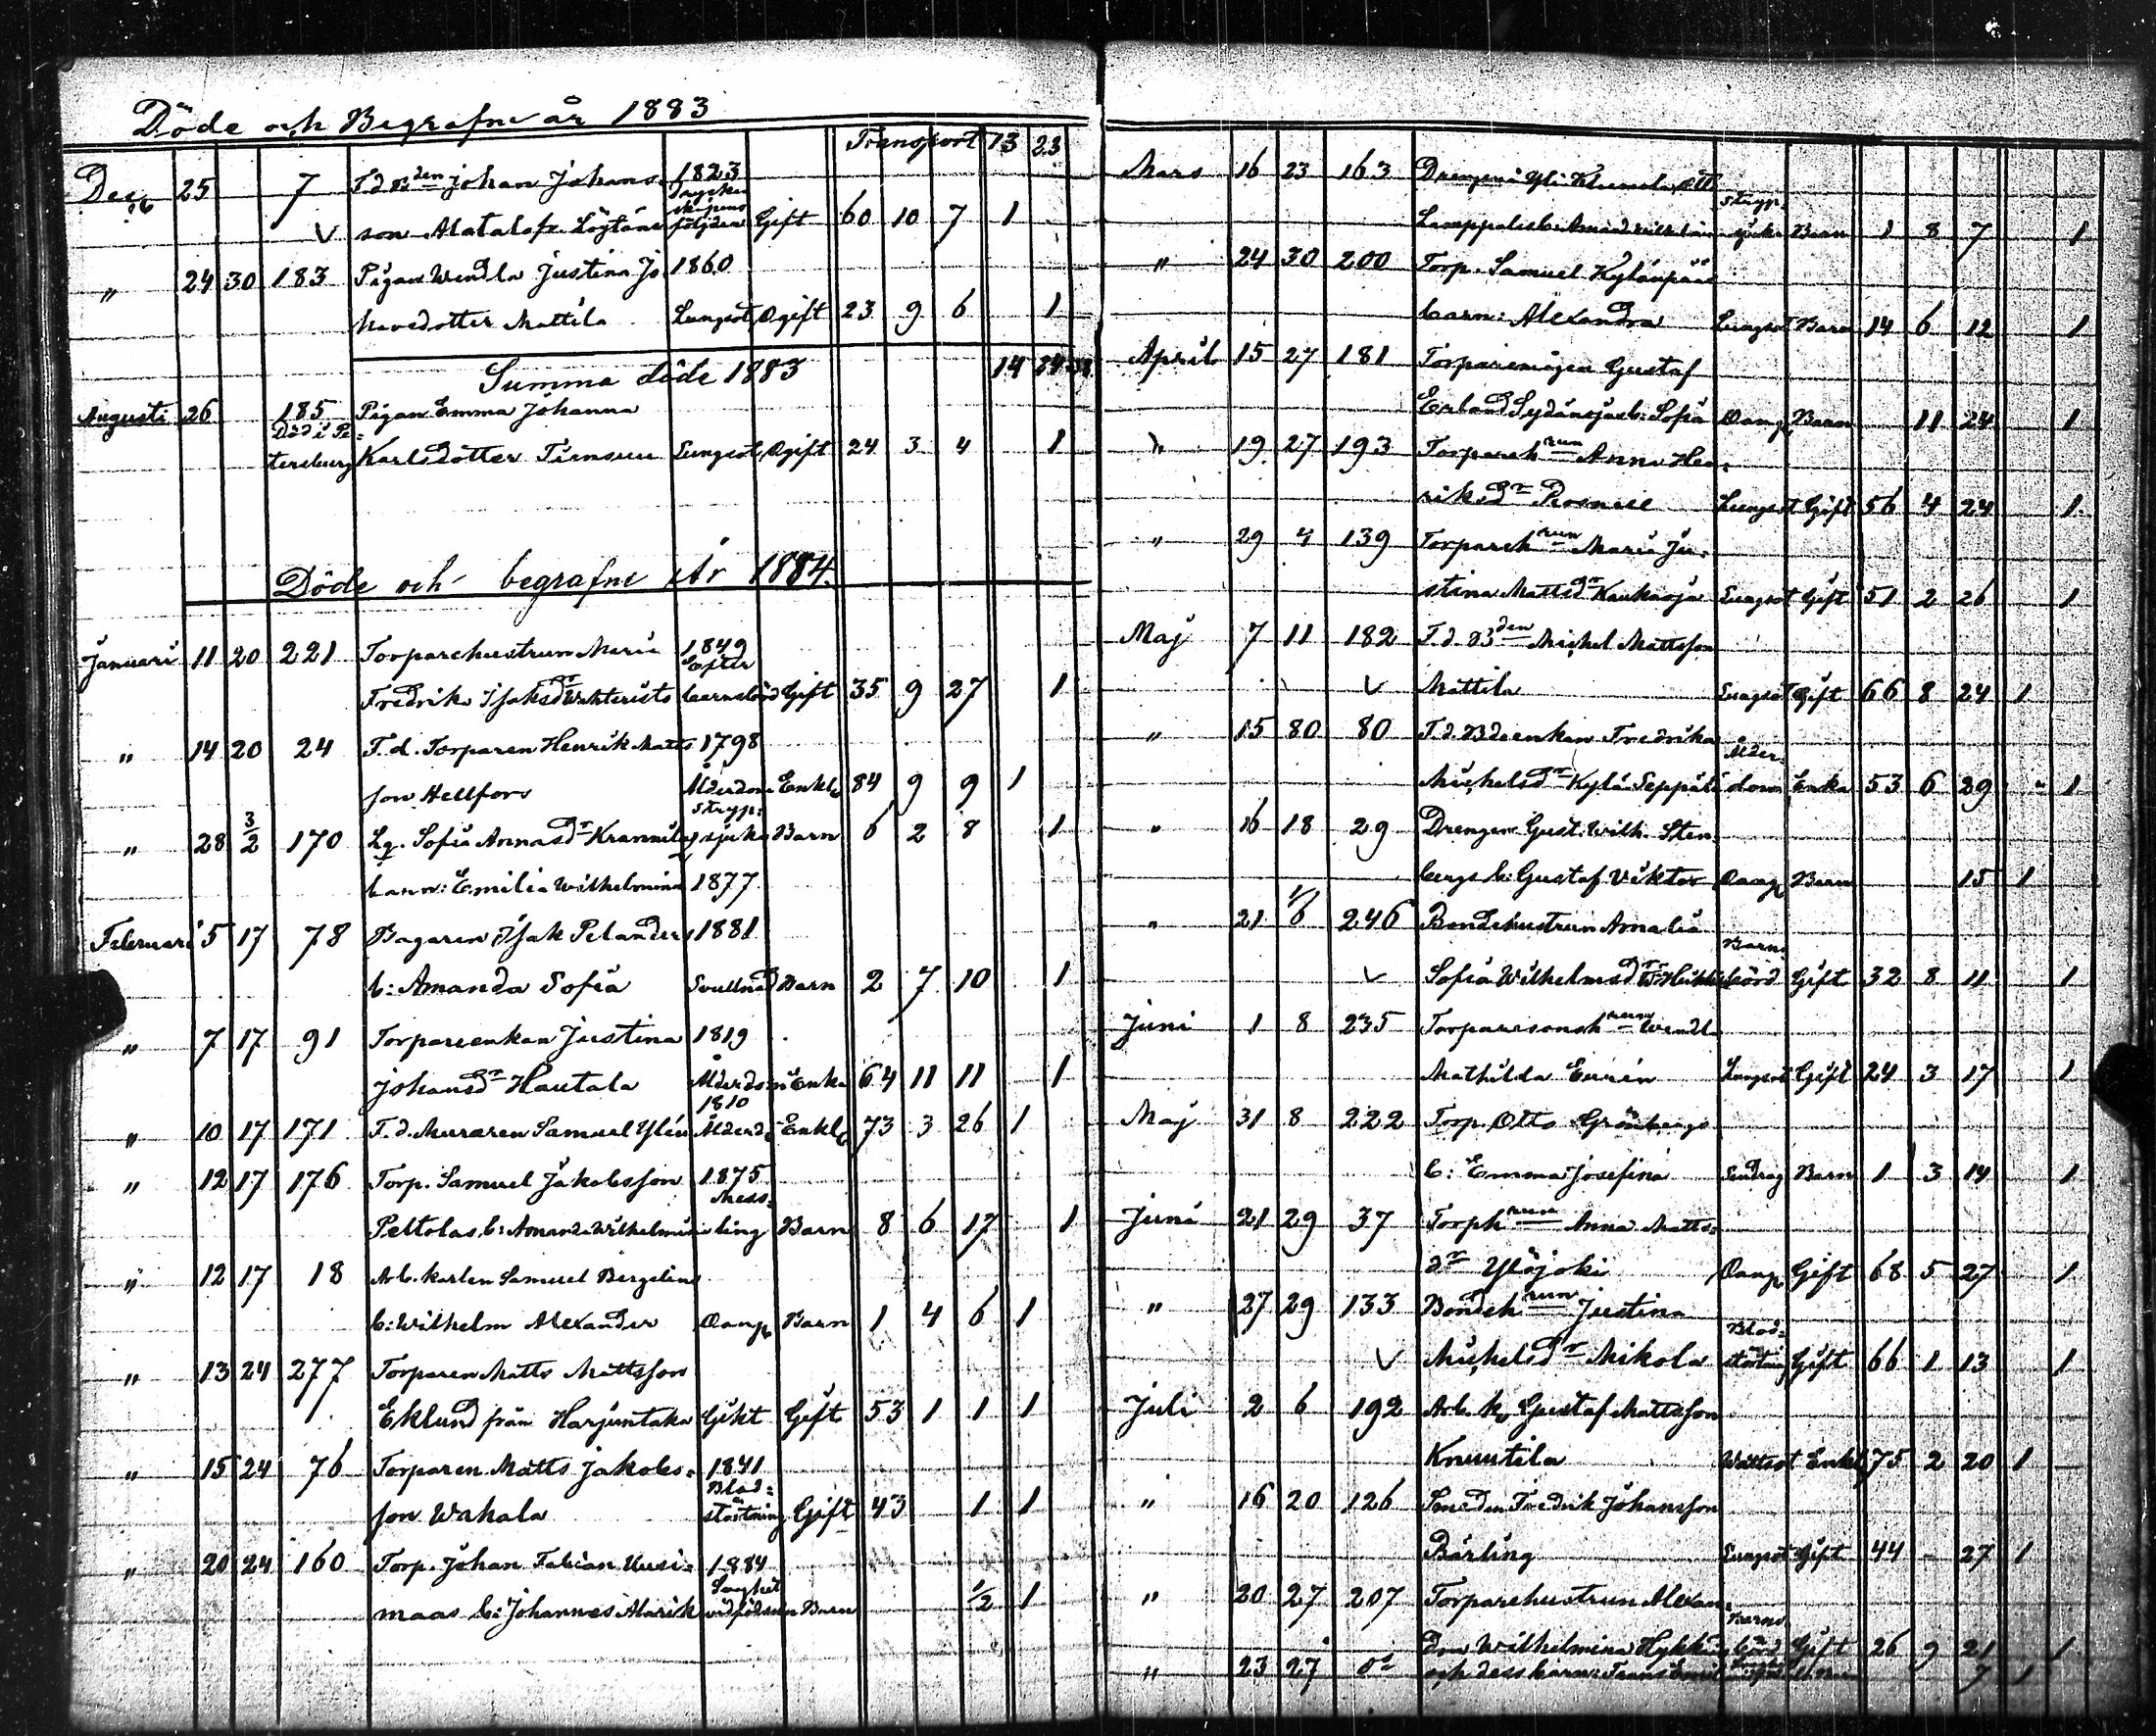 Döde och Begrafne år 1883
Transport 13 23
Dec. 25 7 T.d. B:den Johan Johans- 1823
son Alatalo fr. Löytäne följder Gift 60 10 7 1
" 24 30 183 Pigan Wendla Justina Jo- 1860
hansdotter Mattila Lungsot Ogift 23 9 6 1
Summa döde 1883 14 24
Augusti 26 185 Pigan Emma Johanna
Död i Pe-
tersburg Karlsdotter Lungsot Ogift 24 3 4 1
Döde och begrafne År 1884.
Januari 11 20 221 Torparehustrun Maria 1849
Efter
Fredrika Isaksdr barnsbörd Gift 35 9 27 1
" 14 20 24 T.d. Torparen Henrik Matts 1798
son Hellfors Ålderdom Enkl. 84 9 9 1
stryp-
" 28 3/2 170 Lg. Sofia Annasdr sjuka Barn 6 2 8 1
barn: Emilia Wilhelmina 1877
Februari 5 17 78 Bagaren Isak Pelanders 1881
b: Amanda Sofia Svullnad Barn 2 7 10 1
" 7 17 91 Torpareenkan Justina 1819
Johansdr Hautala Ålderdom Enka 64 11 11 1
1810
" 10 17 171 T.d. Muraren Samuel Ylén Ålderd. Enkl. 73 3 26 1
" 12 17 176 Torp. Samuel Jakobsson 1875
Mess-
Peltolas b: Amanda Wilhelmina ling Barn 8 6 17 1
" 12 17 18 Arb. karlen Samuel Bergelins
b: Wilhelm Alexander Oang. Barn 1 4 6 1
" 13 24 277 Torparen Matts Mattsson
Eklund från Harjuntaka Gikt Gift 53 1 1 1
" 15 24 76 Torparen Matts Jakobs- 1841
Blod-
son Wahala störtning Gift 43 1 1
" 20 24 160 Torp. Johan Fabian Uusi- 1884
Svaghet
maas b: Johannes Alarik vid födseln Barn 1/2 1
Mars 16 23 163 Drengen
stryp-
sjuka Barn 1 8 7 1
" 24 30 200 Torp. Samuel Kylänpää
barn: Alexandra Lungsot Barn 14 6 12 1
April 15 27 181 Torparemågen Gustaf
Erland b: Sofia Oang. Barn 11 24 1
" 19 27 193 Torpareh:run Anna Hen-
riksdr Lungsot Gift 56 4 24 1
" 29 4 139 Torpareh:run Maria Ju-
stina Mattsdr Kaukasja Lungsot Gift 51 2 26 1
Maj 7 11 182 T.d. B:den Michel Mattsson
Mattila Lungsot Gift 66 8 24 1
" 15 80 80 T.d. Bdeenkan Fredrika
Ålder-
Michelsdr Kylä Seppälä dom Enka 53 6 29 1
" 16 18 29 Drengen Gust. Wilh. Sten-
bergs b: Gustaf Viktor Oang. Barn 15 1
" 21 1/6 246 Bondehustrun Amalia
Barns
Sofia Wilhelmsdr börd Gift 32 8 11 1
Juni 1 8 235 Torparesonsh:run Wendla
Mathilda Lungsot Gift 24 3 17 1
Maj 31 8 222 Torp. Otto Grönbergs
b: Emma Josefina Sendrag Barn 1 3 14 1
Juni 21 29 37 Torph:run Anna Matts-
dr Ylöjoki Oang. Gift 68 5 27 1
" 27 29 133 Bondeh:run Justina
Blod-
Michelsdr Mikola störtning Gift 66 1 13 1
Juli 2 6 192 Arb. k. Gustaf Mattsson
Knuutila Wattsot Enkl. 75 2 20 1
" 16 20 126 Smeden Fredrik Johansson
Bärling Lungsot Gift 44 - 27 1
" 20 27 207 Torparehustrun Alexan-
Barns
dra Wilhelmina börd Gift 26 9 21 1
" 23 27 do och dess barn: Frans 7 1